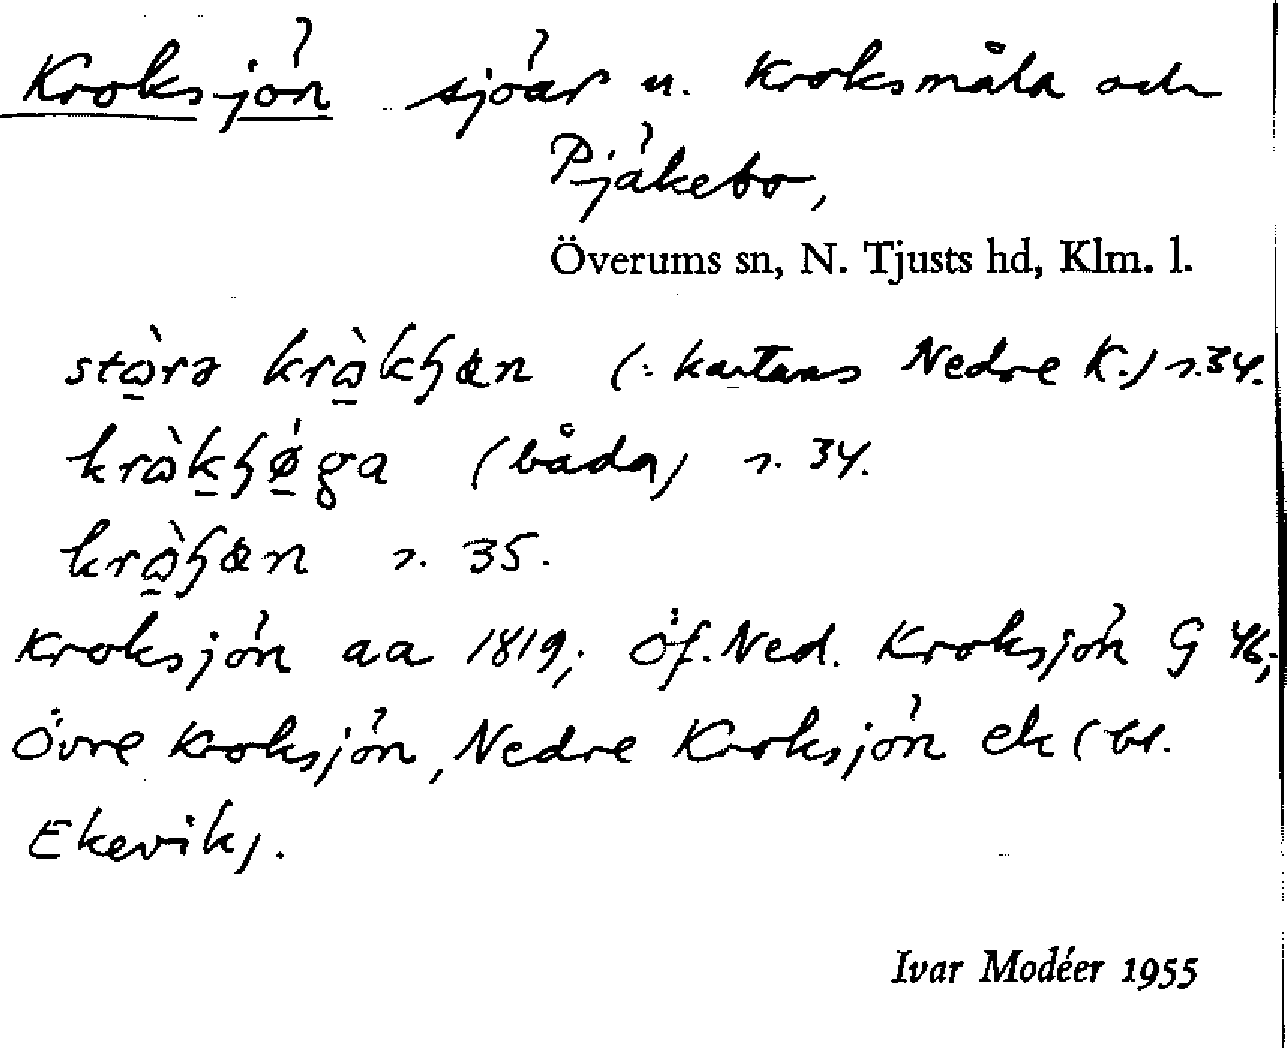 Kroksjön sjöar u. Kroksmåla och
Pjäkebo,
Överums sn, N. Tjusts hd, Klm. l.
(: kartans Nedre K.) s. 34.
(båda) s. 34.
s. 35.
Kroksjön aa 1819; Öf. Ned. Kroksjön G 46;
Övre Kroksjön, Nedre Kroksjön ek (bl.
Ekevik).
Ivar Modéer 1955